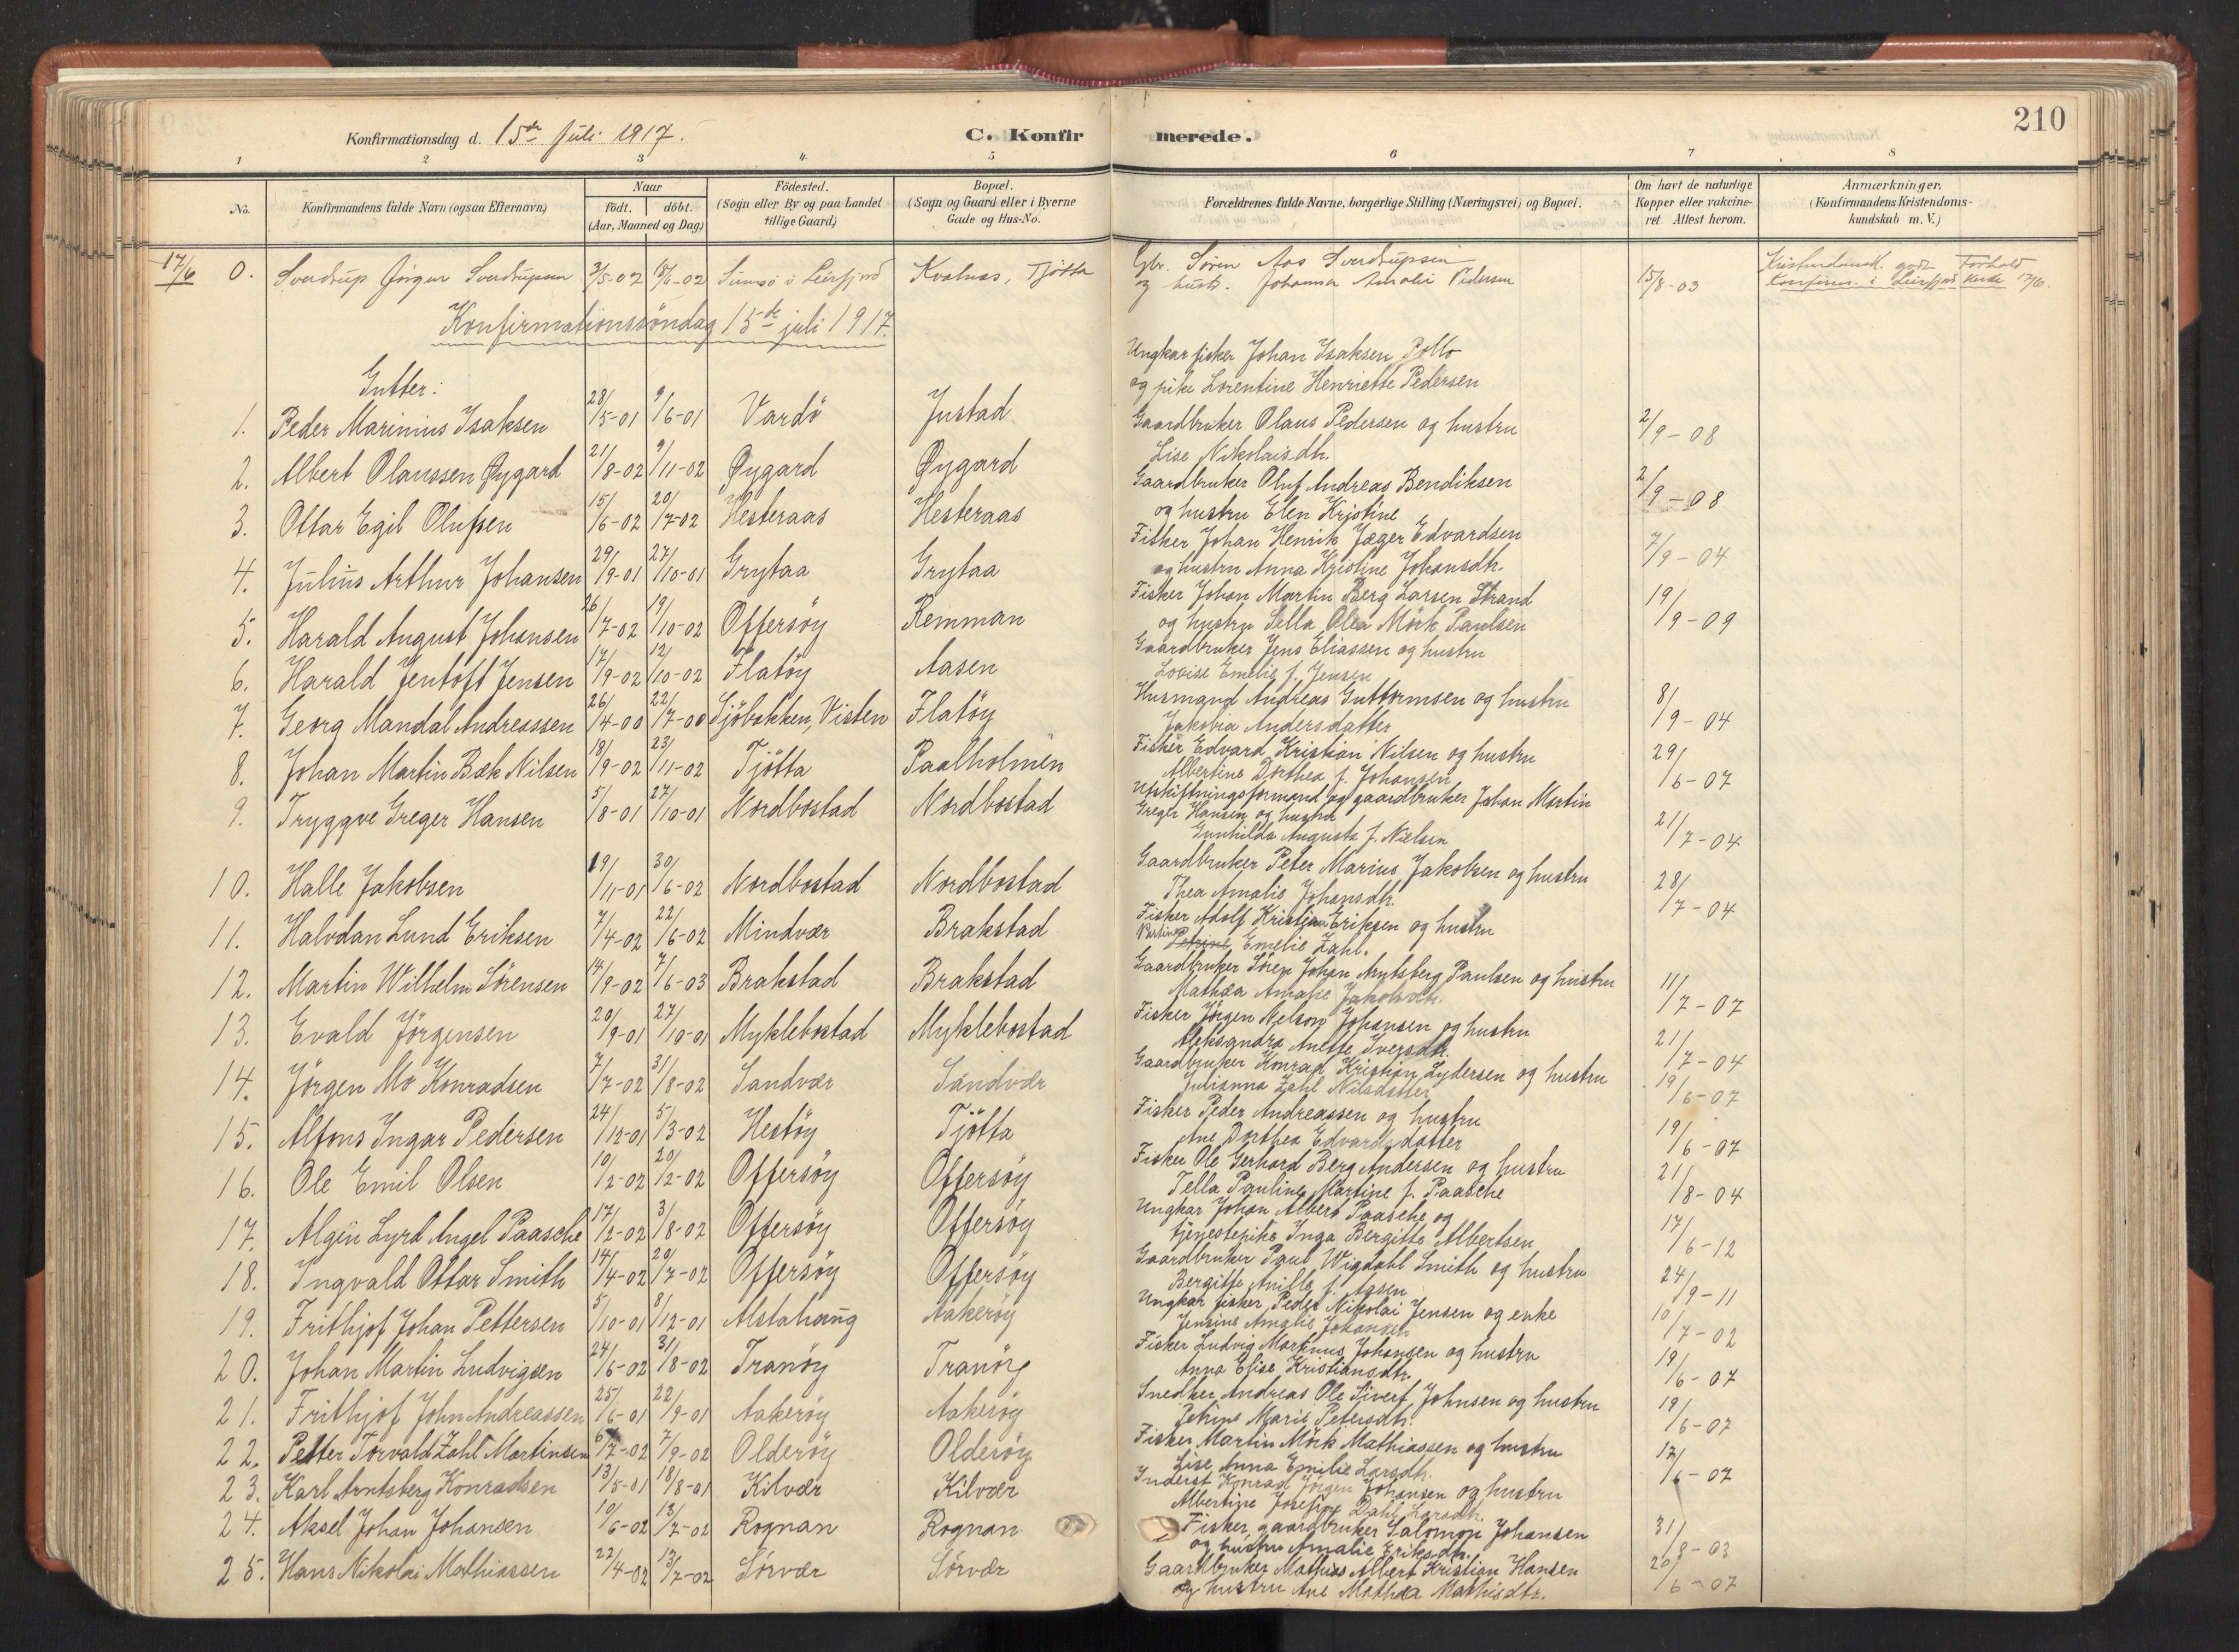 Konfirmationsdag d. 15de Juli 1917.
C. Konfirmerede.
210
1 2 3 4 5 6 7 8
No.
Konfirmandens fulde Navn (ogsaa Efternavn)
Naar
födt. döbt.
(Aar, Maaned og Dag)
Födested.
(Sogn eller By og paa Landet
tillige Gaard)
Bopæl.
(Sogn og Gaard eller i Byerne
Gade og Hus-No.
Forældrenes fulde Navne, borgerlige Stilling (Næringsvei) og Bopæl.
Om havt de naturlige
Kopper eller vaccine-
ret. Attest herom.
Anmærkninger.
(Konfirmandens Kristendoms-
kundskab m. V.)
17/6 0. Sverdrup Jörgen Sverdrupsen 3/5-02 18/6-02 i Leirfjord Kvalnes, Tjötta Gbr. Sören Aas Sverdrupsen
og hust. Johanna Amalie Pedersen 15/8-03 Kristendomsk. godt Forhold
Konfirm. i Leirfjord kirke 17/6.
Konfirmationssöndag 15de juli 1917.
Gutter:
1. Peder Marinius Isaksen 28/5-01 9/6-01 Vardö Justad Ungkar fisker Johan Isaksen Pollo
og pike Lorentine Henriette Pedersen 2/9-08
2. Albert Olaussen Øygard 21/8-02 9/11-02 Øygard Øygard Gaardbruker Olaus Pedersen og hustru
Lise Nikolaisdh. 2/9-08
3. Ottar Egil Olufsen 15/6-02 20/7-02 Hesteraas Hesteraas Gaardbruker Oluf Andreas Bendiksen
og hustru Elen Kristine 7/9-04
4. Julius Arthur Johansen 29/9-01 27/10-01 Grytaa Grytaa Fisker Johan Henrik Jæger Edvardsen
og hustru Anna Kristine Johansdh. 19/9-09
5. Harald August Johansen 26/7-02 19/10-02 Offersöy Remman Fisker Johan Martin Berg Larsen Strand
og hustru Sella Olea Mörk Paulsen
6. Harald Jentoft Jensen 17/9-02 12/10-02 Flatöy Aasen Gaardbruker Jens Eliassen og hustru
Lovise Emelie f. Jensen
7. Georg Mandal Andreassen 26/4-00 22/7-00 Sjöbakken, Visten Flatöy Husmand Andreas Guttormsen og hustru
Jakobia Andersdatter 8/9-04
8. Johan Martin Bæk Nilsen 18/9-02 23/11-02 Tjötta Paalholmen Fisker Edvard Kristian Nilsen og hustru
Albertine Dorthea f. Johansen 29/6-07
9. Tryggve Greger Hansen 5/8-01 27/10-01 Nordbostad Nordbostad Utskiftningsformand og gaardbruker Johan Martin
Greger Hansen og hustru
Gunhilda Augusta f. Nielsen 21/7-04
10. Halle Jakobsen 19/11-01 30/6-02 Nordbostad Nordbostad Gaardbruker Peter Marius Jakobsen og hustru
Thea Amalie Johansdh. 28/7-04
11. Halvdan Lund Eriksen 7/4-02 22/6-02 Mindvær Brakstad Fisker Adolf Kristian Eriksen og hustru
Petrine Emelie Zahl.
12. Martin Wilhelm Sörensen 14/9-02 7/6-03 Brakstad Brakstad Gaardbruker Sören Johan Arntsberg Paulsen og hustru
Mathea Amalie Jakobsdh. 11/7-07
13. Evald Jörgensen 20/9-01 27/10-01 Myklebostad Myklebostad Fisker Jörgen Nelson Johansen og hustru
Aleksandra Anette Iversdh. 21/7-04
14. Jörgen Mo Konradsen 7/7-02 31/8-02 Sandvær Sandvær Gaardbruker Konrad Kristian Lydersen og hustru
Julianna Zahl Nilsdatter 19/6-07
15. Alfons Ingar Pedersen 24/12-01 5/3-02 Hestöy Tjötta Fisker Peder Andreassen og hustru
Ane Dorthea Edvardsdatter 19/6-07
16. Ole Emil Olsen 10/2-02 20/2-02 Offersöy Offersöy Fisker Ole Gerhard Berg Andersen og hustru
Tella Pauline Martine f. Paasche 21/8-04
17. Algin Lyrd Angel Paasche 17/2-02 3/8-02 Offersöy Offersöy Ungkar Johan Albert Paasche og
tjenestepike Inga Bergitte Albertsen 17/6-12
18. Ingvald Ottar Smith 14/4-02 20/7-02 Offersöy Offersöy Gaardbruker Paul Wigdahl Smith og hustru
Bergitte Anilla f. Aasen 24/9-11
19. Frithjof Johan Pettersen 5/10-01 8/12-01 Alstahaug Aakeröy Ungkar fisker Peder Nikolai Jensen og enke
Jensine Amalie Johansen 10/7-02
20. Johan Martin Ludvigsen 24/6-02 31/8-02 Tranöy Tranöy Fisker Ludvig Martinus Johansen og hustru
Anna Elise Kristiansdh. 19/6-07
21. Frithjof John Andreassen 25/6-01 22/9-01 Aakeröy Aakeröy Snedker Andreas Ole Sivert Johnsen og hustru
Petrine Marie Petersdh. 19/6-07
22. Petter Torvald Zahl Martinsen 6/7-02 7/9-02 Olderöy Olderöy Fisker Martin Mörk Mathiassen og hustru
Lise Anna Emilie Larsdh. 17/6-07
23. Karl Arntsberg Konradsen 13/5-01 18/8-01 Kilvær Kilvær Inderst Konrad Jörgen Johansen og hustru
Albertine Josefine Dahl Larsdh.
24. Aksel Johan Johansen 10/6-02 13/7-02 Rognan Rognan Fisker, gaardbruker Salomon Johansen
og hustru Amalie Eriksdh. 31/8-03
25. Hans Nikolai Mathiassen 22/4-02 13/7-02 Sörvær Sörvær Gaardbruker Mathias Albert Kristian Hansen
og hustru Ane Mathea Mathisdtr. 20/6-07